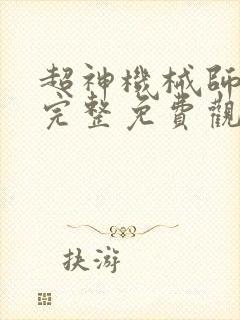 超神機械師
完整免費觀
抉游